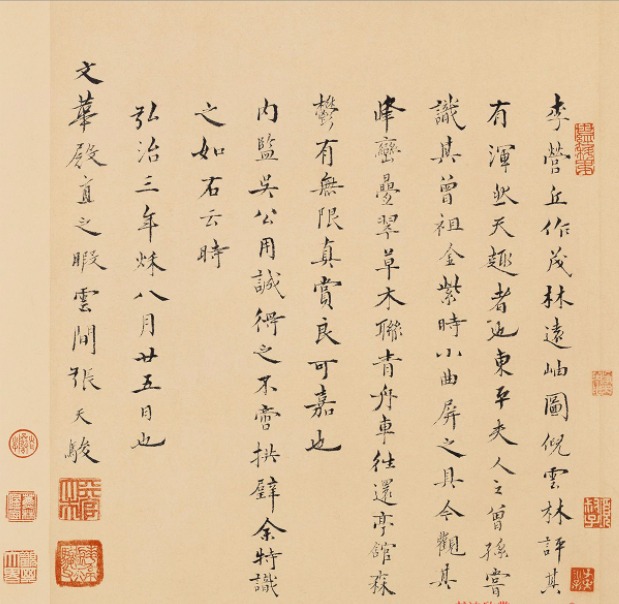 李營丘作茂林遠岫圖倪雲林評其
有渾然天趣者也東平夫人之曾孫嘗
識其曾祖金紫時小曲屏之具今觀其
峰巒疊翠草木聯青舟車往還亭館森
鬱有無限真賞良可嘉也
內監吳公用誠得之不啻拱璧余特識
之如右云時
弘治三年秌八月廿五日也
文華殿直之暇雲間張天駿